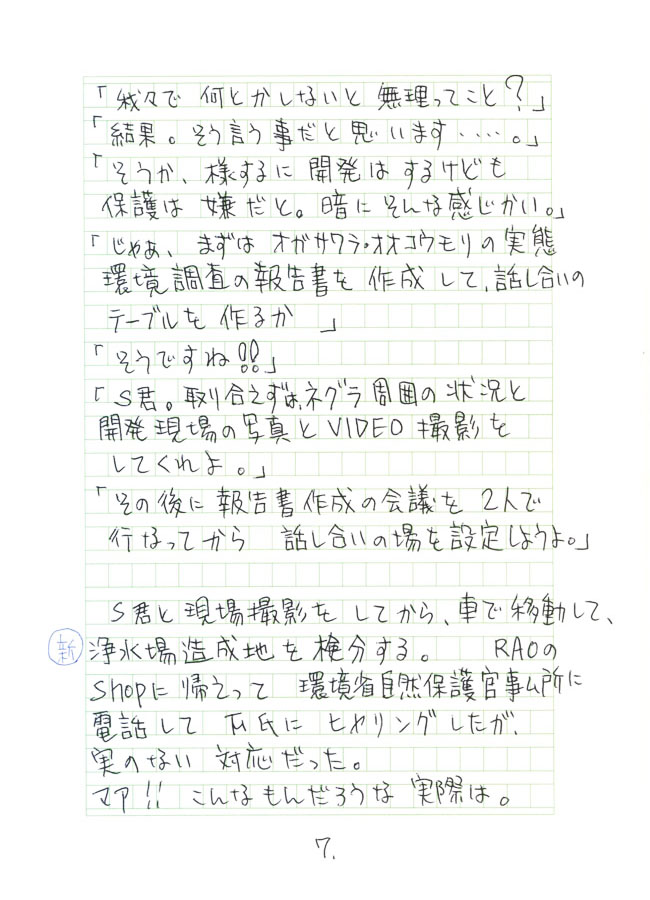 「我々で 何とかしないと 無理ってこと?」
「結果。そう言う事だと思います・・・・。」
「そうか、様するに 開発は するけども
保護は 嫌だと。暗に そんな感じかい。」
「じゃあ、まずは オガサワラ・オオコウモリの実態
環境調査の報告書を 作成 して、話し合いの
テーブルを 作るか 」
「そうですね!!」
「S君。取り合えずは、ネグラ周囲の状況と
開発現場の写真とVIDEO 撮影を
してくれよ。」
「その後に 報告書作成の会議を 2人で
行なってから 話し合いの場を設定しようよ。」
S君と現場撮影を してから、車で移動して、
新 浄水場造成地を検分する。 RAOの
Shopに帰えって 環境省自然保護官事ム所に
電話して 氏に ヒヤリングしたが、
実のない 対応だった。
マア!! こんなもんだろうな 実際は。
7.